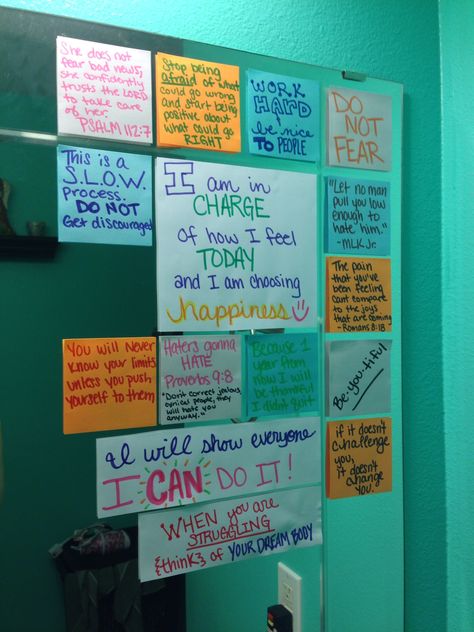 She does not
fear bad news;
she confidently
trusts the LORD
to take care
of her.
PSALM 112:7
Stop being
afraid of what
could go wrong
and start being
positive about
what could go
RIGHT
WORK
HARD &
be nice
to PEOPLE
DO
NOT
FEAR
This is a
S.L.O.W.
process.
DO NOT
Get discouraged
I am in
CHARGE
of how I feel
TODAY
and I am choosing
happiness
"Let no man
pull you low
enough to
hate him."
-MLK Jr.
The pain
that you've
been feeling
cant compare
to the joys
that are coming
-Romans 8:18
You will Never
know your limits
unless you push
yourself to them
Haters gonna
HATE
Proverbs 9:8
"Don't correct jealous,
cynical people, they
will hate you
anyway."
Because 1
year from
now I will
be thankful
I didn't quit
Be-you-tiful
I will show everyone
I CAN DO IT!
if it doesn't
challenge
you,
it doesn't
change
you.
WHEN you are
STRUGGLING
{think} of YOUR DREAM BODY